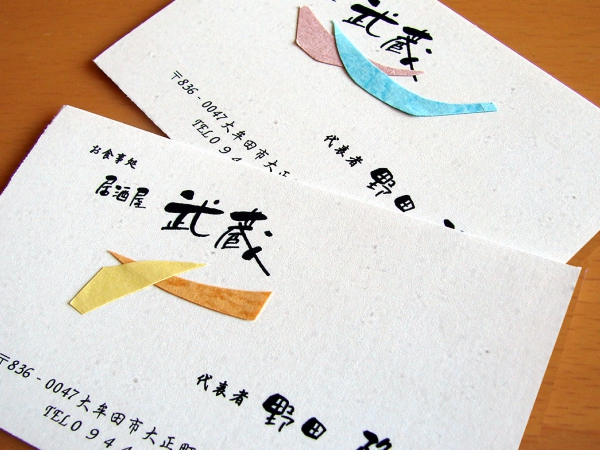 武蔵
〒836-0047大牟田市大正
TEL094
代表者 野田
お食事処
居酒屋 武蔵
〒836-0047大牟田市大正町
TEL094
代表者 野田